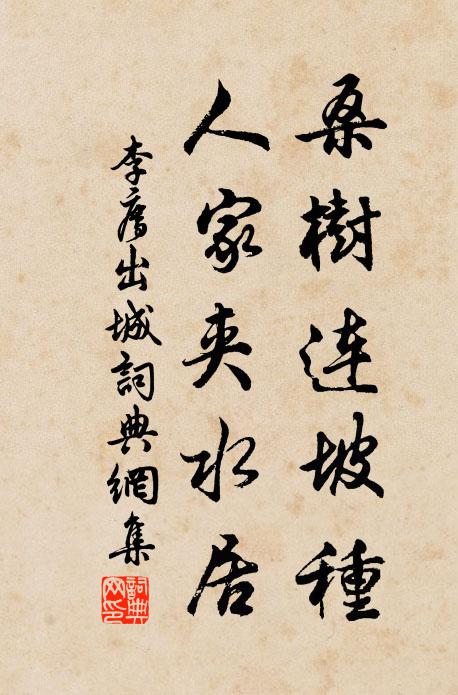 桑樹連坡種
人家夾水居
李廌出城詞典網集
詞典网印